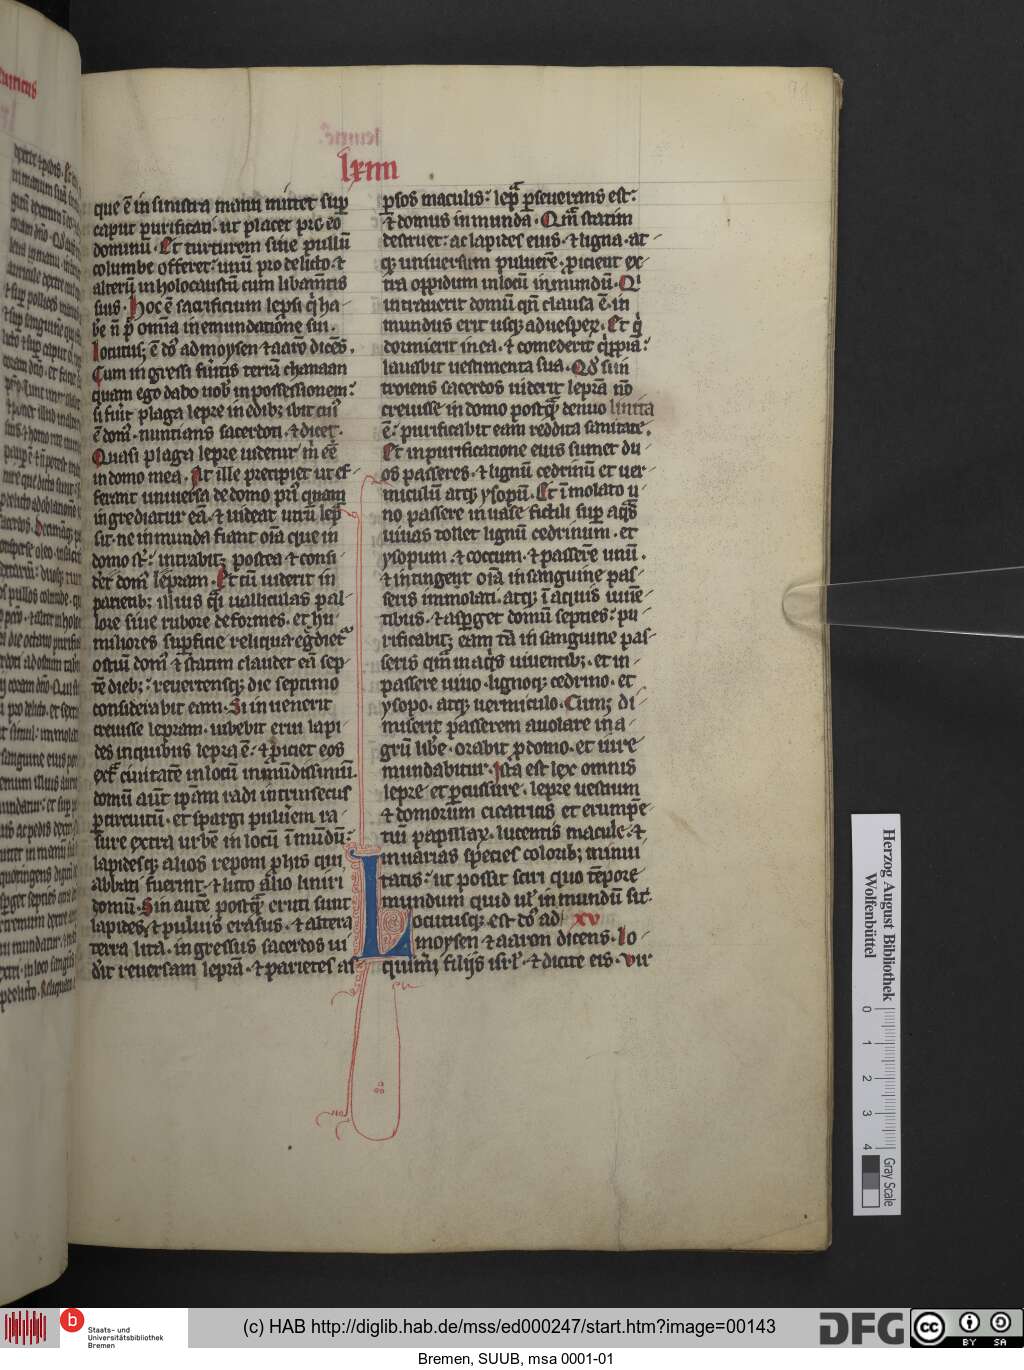 lxiiii
que ē in sinistra manu mittet sup̄
caput purificati. ut placet pro eo
dominū. Et turturem siue pullū
columbe offeret: unū pro delicto. ⁊
alterū in holocaustū cum libamētis
suis. Hoc ē sacrificium leprosi qͥ ha-
bē n̄ p̄t omīa in emundatiōne sui.
locutusqꝫ ē dn̄s ad moysen ⁊ aarō dicēs.
Cum ingressi fūitis terrā chanaan
quam ego dabo uob̄ in possessionem:
si fūit plaga lepre in edibꝫ ibit cuiꝰ
ē domꝰ. nuntians sacerdoti. ⁊ dicet.
Quasi plaga lepre uidetur m̄ eē
in domo mea. At ille precipiet ut ef-
ferant uniuersa de domo priꝰ quam
ingrediatur eā. ⁊ uideat utrū lep̄
sit. ne inmunda fiant oīa que in
domo sr̄: intrabitqꝫ postea ⁊ consi-
der& domꝰ lepram. Et cū uiderit in
parietibꝫ illius qͣsi ualliculas pal-
lore siue rubore deformes. et hu-
miliores sup̄ficie reliqua egͬdiet᷑
ostiū domꝰ ⁊ statim claudet eā sep-
tē diebꝫ: reuertensqꝫ die septimo
considerabit eam. Si inuenerit
creuisse lepram. iubebit erui lapi-
des in quibus lepra ē: ⁊ ꝓiciet eos
extͣ ciuitatē in locū inmūdissimū.
domū aūt ip̄am radi intrinsecus
ꝑ circuitū. et spargi puluēm ra-
sure extra urbē in locū īmūdū:
lapidesqꝫ alios reponi ꝓ hiis qui
ablati fuerint. ⁊ luto alio liniri
domū. Sin autē postqͣ eruti sunt
lapides ⁊ puluis erasus. ⁊ altera
terra lita. ingressus sacerdos ui-
dit reuersam leprā. ⁊ parietes as-
ꝑsos maculis: lepͣ ꝑseuerans est:
⁊ domus inmunda. Qm̄ statim
destruet: ac lapides eius. ⁊ ligna. at-
qꝫ uniuersum puluerē. ꝓicient ex-
tra oppidum in locū inmundū. Qͥ
intrauerit domū qn̄ clausa ē. in-
mundus erit usqꝫ ad uesꝑeꝝ. Et qͥ
dormierit in ea. ⁊ comederit qͥppiā:
lauabit uestimenta sua. Qd̓ si in-
troiens sacerdos uiderit leprā nō
creuisse in domo postqͣ denuo linita
ē: purificabit eam reddita sanitate.
Et in purificatione eius sumet du-
os passeres. ⁊ lignū cedrinū et uer-
miculū atqꝫ ysopū. Et īmolato u-
no passere in uase fictili sup̄ aqͣs
uiuas tollet lignū cedrinum. et
ysopum. ⁊ coccum. ⁊ passerē unū.
⁊ intinget oīa in sanguine pas-
seris immolati. atqꝫ ī aquis uiuē-
tibus. ⁊ asꝑget domū septies: pu-
rificabitqꝫ eam tā in sanguine pas-
seris qͣm in aqͥs uiuentibꝫ. et in
passere uiuo. lignoqꝫ cedrino. et
ysopo. atqꝫ uermiculo. Cumqꝫ di-
miserit passerem auolare in a-
grū libē. orabit ꝓ domo. et iure
mundabitur. Ista est lex omnis
lepre et ꝑcussure. lepre uestium
⁊ domorum cicatricis et erumpē-
tiū papillaꝝ. lucentis macule. ⁊
inuarias species coloribꝫ inmu-
tatis: ut possit sciri quo tēpore
mundum quid uꝉ inmundū sit.
Locutusqꝫ est dn̄s ad xv
moysen ⁊ aaron dicens. Lo-
quimī filijs isrꝉ. ⁊ dicite eis. Vir
Herzog August Bibliothek
Wolfenbüttel
0 1 2 3 4
Gray Scale
b
Staats- und
Universitätsbibliothek
Bremen
(c) HAB http://diglib.hab.de/mss/ed000247/start.htm?image=00143
DFG
cc BY SA
Bremen, SUUB, msa 0001-01